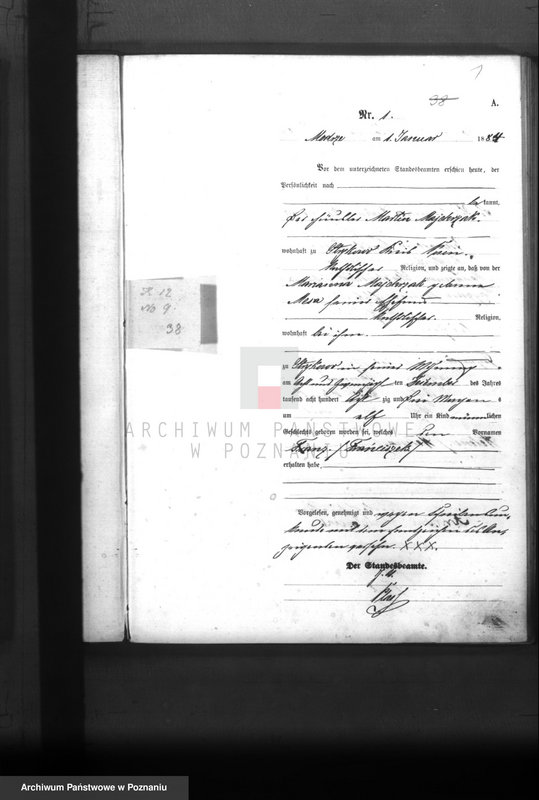 1
38
A.
Nr. 1.
am 1. Januar 1884
Vor dem unterzeichneten Standesbeamten erschien heute, der
Persönlichkeit nach
be kannt,
der Häusler Martin Majchrzak
wohnhaft zu Kreis
katholischer Religion, und zeigte an, daß von der
Marianna Majchrzak geborene
seiner Ehefrau
katholischer Religion,
wohnhaft bei ihm
zu in seiner Wohnung
am acht und zwanzig ten Dezember des Jahres
tausend acht hundert acht zig und drei Morgens
um elf Uhr ein Kind männlichen
Geschlechts geboren worden sei, welches den Vornamen
Franz (Franciszek)
erhalten habe
Vorgelesen, genehmigt und wegen Schreibensun-
kunde mit dem Handzeichen des An-
zeigenden versehen XXX.
Der Standesbeamte.
K 12
No 9
38
ARCHIWUM PAŃSTWOWE
W POZNANIU
Archiwum Państwowe w Poznaniu